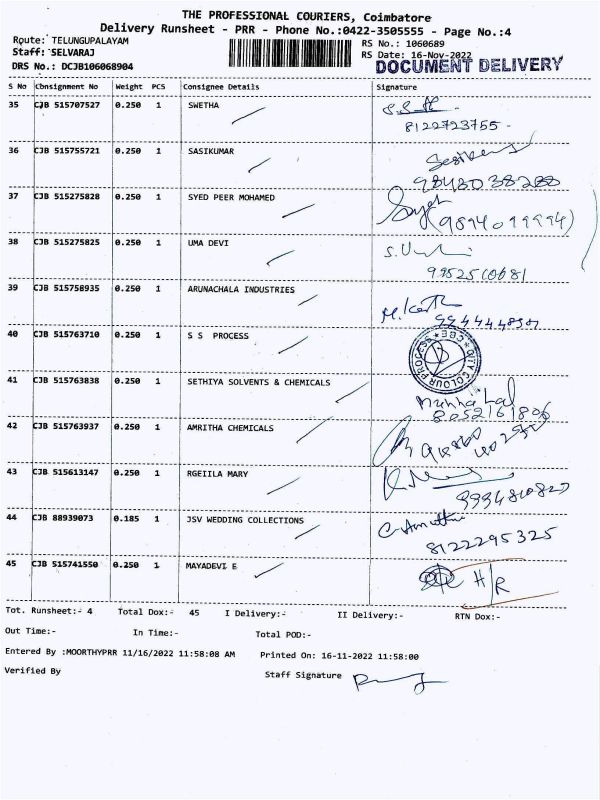 THE PROFESSIONAL COURIERS, Coimbatore
Delivery Runsheet - PRR - Phone No.:0422-3505555 - Page No.:4
Route: TELUNGUPALAYAM RS No.: 1060689
Staff: SELVARAJ RS Date: 16-Nov-2022
DRS No.: DCJB106068904 DOCUMENT DELIVERY
S No Consignment No Weight PCS Consignee Details Signature
35 CJB 515707527 0.250 1 SWETHA
8122723755
36 CJB 515755721 0.250 1 SASIKUMAR
37 CJB 515275828 0.250 1 SYED PEER MOHAMED
38 CJB 515275825 0.250 1 UMA DEVI
39 CJB 515758935 0.250 1 ARUNACHALA INDUSTRIES
40 CJB 515763710 0.250 1 S S PROCESS
CITY COLOUR PROCESS CBE
41 CJB 515763838 0.250 1 SETHIYA SOLVENTS & CHEMICALS
8052161806
42 CJB 515763937 0.250 1 AMRITHA CHEMICALS
43 CJB 515613147 0.250 1 RGEIILA MARY
44 CJB 88939073 0.185 1 JSV WEDDING COLLECTIONS
8122295325
45 CJB 515741550 0.250 1 MAYADEVI E H/R
Tot. Runsheet:- 4 Total Dox:- 45 I Delivery:- II Delivery:- RTN Dox:-
Out Time:- In Time:- Total POD:-
Entered By :MOORTHYPRR 11/16/2022 11:58:08 AM Printed On: 16-11-2022 11:58:00
Verified By Staff Signature